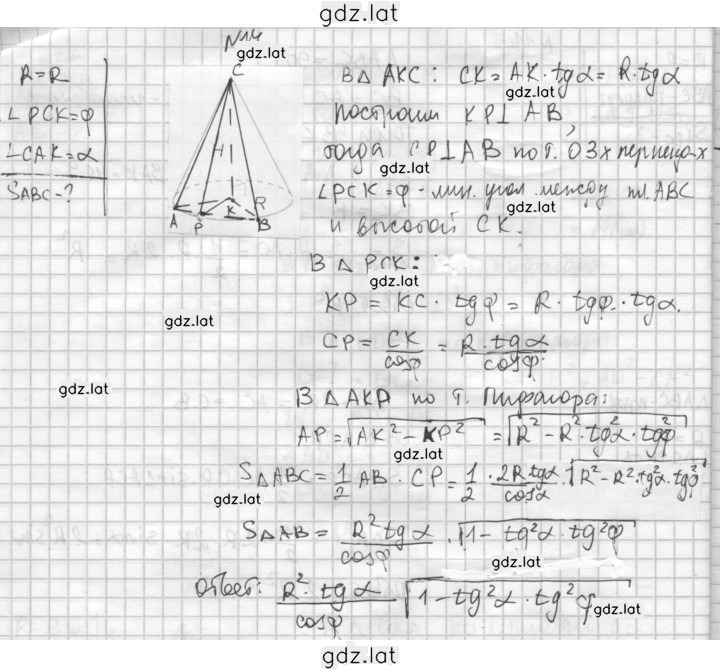 gdz.lat
N14
gdz.lat
R=R
∠PCK=φ
∠CAK=α
S ABC-?
C
H
R
A
P
K
B
В Δ AKC: CK=AK·tgα= R·tgα
gdz.lat
Построим KP⊥AB,
тогда CP⊥AB по т. О 3х перпенд-х
gdz.lat
∠PCK=φ - мин. угол между пл. ABC
gdz.lat
и высотой CK.
В Δ PCK:
gdz.lat
KP = KC · tgφ = R · tgφ · tgα.
gdz.lat
CP= CK/cosφ = R·tgα/cosφ.
gdz.lat
В Δ AKP по т. Пифагора:
AP=√(AK²-KP²) = √(R²-R²·tg²α·tg²φ)
gdz.lat
S ΔABC= 1/2 AB · CP= 1/2 · 2R tgα/cosα · √(R²-R²·tg²α·tg²φ)
gdz.lat
S ΔAB= R² tgα/cosφ · √(1-tg²α·tg²φ)
gdz.lat
Ответ: R²·tgα/cosφ √(1-tg²α·tg²φ
gdz.lat
gdz.lat